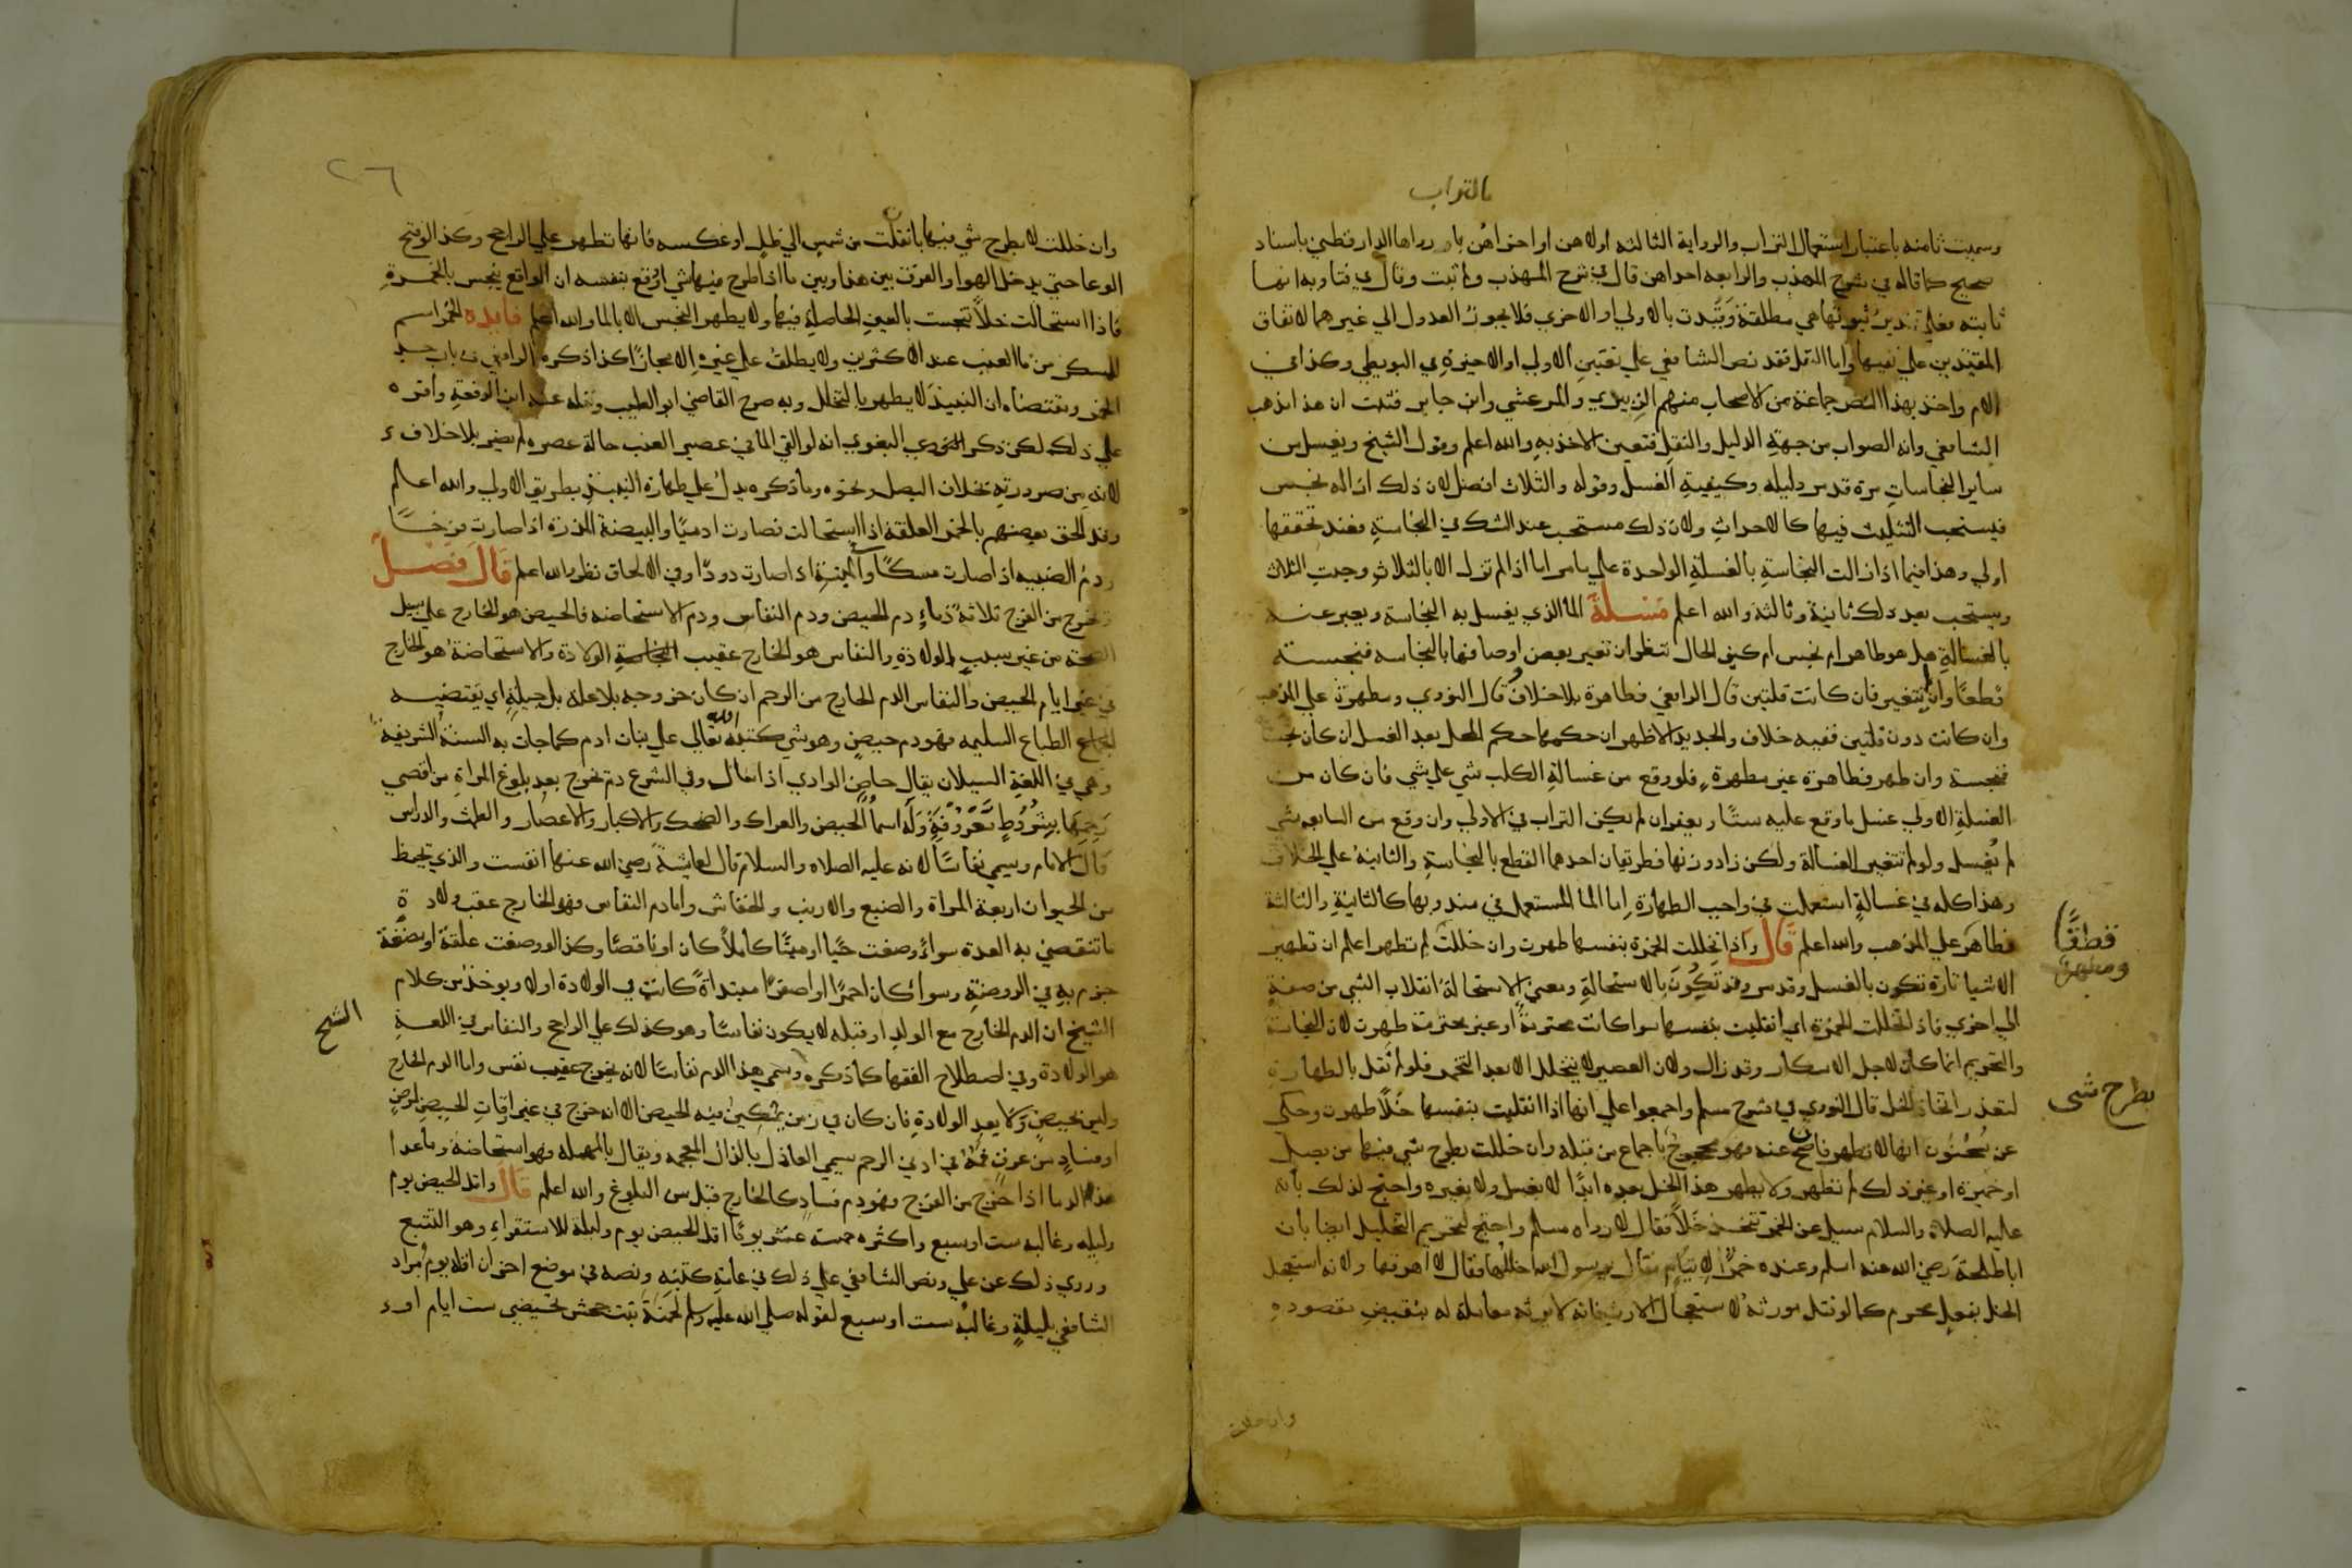 بالتراب
وسميت ثامنه باعتبار استعمال التراب والرواية الثالثه اولاهن او اخراهن رواها الدارقطني باسناد
صحيح كما قاله في شرح المهذب والرابعه احداهن قال في شرح المهذب ولم تثبت وقال في فتاويه انها
ثابته فعلي تقدير ثبوتها هي مطلقة وقيدت بالاولي او الاخري فلا يجوز العدول الي غيرهما لاتفاق
المقيدين علي نفيها واما النقل فقد نص الشافعي علي تعيين الاولي او الاخيرة في البويطي وكذا في
الام واخذ بهذا النص جماعة من الاصحاب منهم الزبيدي والمرعشي وابن جابر فثبت ان هذا مذهب
الشافعي وانه الصواب من جهة الدليل والنقل فتعين الاخذ به والله اعلم وقول الشيخ ويغسل من
ساير النجاسات مرة قد مر دليله وكيفية الغسل وقوله والثلاث افضل لان ذلك ازاله نجس
فيستحب التثليث فيها كالاحداث ولان ذلك مستحب عند الشك في النجاسة فعند تحققها
اولي وهذا فيما اذا زالت النجاسة بالغسلة الواحدة علي ما مر اما اذا لم تزل الا بالثلاث وجبت الثلاث
ويستحب بعد ذلك ثانية وثالثه والله اعلم مسلة الما الذي يغسل به النجاسة ويعبر عنه
بالغسالة هل هو طاهر ام نجس ام كيف الحال تنظر ان تغير بعض اوصافها بالنجاسه فنجسته
قطعا وان لم تتغير فان كانت قلتين قال الرافعي فطاهرة بلا خلاف وقال النووي ومطهرة علي المذهب
وان كانت دون قلتين ففيه خلاف والجديد الاظهر ان حكمها حكم المحل بعد الغسل ان كان نجسا
فنجسة وان طهر فطاهرة غير مطهرة فلو وقع من غسالة الكلب شي علي شي فان كان من
الغسلة الاولي غسل ما وقع عليه ستا ويعفر ان لم يكن التراب في الاولي وان وقع من السابعه شي
لم يغسل ولو لم تتغير الغسالة ولكن زاد وزنها فطريقان احدهما القطع بالنجاسة والثانية علي الخلاف
وهذا كله في غسالة استعملت في واجب الطهارة اما الما المستعمل في مندوبها كالثانية والثالثة
فطاهر علي المذهب والله اعلم قال واذا تخللت الخمرة بنفسها طهرت وان خللت لم تطهر اعلم ان تطهير
قطعًا
ومطهرة
الاشيا تارة تكون بالغسل وقد مر وقد تكون بالاستحالة ومعني الاستحالة انقلاب الشي من صفة
الي اخري فاذا تخللت الخمرة اي انقلبت بنفسها سوا كانت محترمة او غير محترمة طهرت لان النجاسة
والتحريم انما كان لاجل الاسكار وقد زال ولان العصير لا يتخلل الا بعد التخمر فلو لم نقل بالطهارة
لتعذر اتخاذ الخل قال النووي في شرح مسلم واجمعوا علي انها اذا انقلبت بنفسها خلا طهرت وحكي
بطرح شى
عن سحنون انها لا تطهر فان صح عنه فهو محجوج باجماع من قبله وان خللت بطرح شي فيها من بصل
او خميرة او غير ذلك لم تطهر ولا يطهر هذا الخل بعده ابدا لا بغسل ولا بغيره واحتج لذلك بانه
عليه الصلاة والسلام سيل عن الخمر تتخذ خلا فقال لا رواه مسلم واحتج لتحريم التخليل ايضا بان
ابا طلحة رضي الله عنه اسلم وعنده خمر لايتام فقال يا رسول الله اخللها فقال لا اهرقها ولانه استعجل
الخل بفعل محرم كما لو قتل مورثه لاستعجال الارث فانه لا يرثه معاملة له بنقيض مقصوده
وان خللت
٢٦
وان خللت لا بطرح شي فيها بل انتقلت من شمس الي ظل او عكسه فانها تطهر علي الراجح وكذا لو فتح
الوعا حتي يدخل الهوا والفرق بين هذا وبين ما اذا طرح فيها شي او وقع بنفسه ان الواقع ينجس بالخمرة
فاذا استحالت خلا تنجست بالعين الحاصلة فيها ولا يطهر النجس الا بالما والله اعلم فايده الخمر اسم
للمسكر من ما العنب عند الاكثرين ولا يطلق علي غيره الا مجازا كذا ذكره الرافعي في باب حد
الخمر ومقتضاه ان النبيذ لا يطهر بالتخلل وبه صرح القاضي ابو الطيب ونقله عنه ابن الرفعة واقره
علي ذلك لكن ذكر البغوي انه لو القي الما في عصير العنب حالة عصره لم يضر بلا خلاف
لانه من ضرورته بخلاف البصل ونحوه وما ذكره يدل علي طهارة النبيذ بطريق الاولي والله اعلم
وقد الحق بعضهم بالخمر العلقة اذا استحالت فصارت ادميا والبيضة المذرة اذا صارت فرخا
ودم الضبيه اذا صارت مسكا والميتة اذا صارت دودا وفي الالحاق نظر والله اعلم قال فصل
يخرج من الفرج ثلاثة دماء دم الحيض ودم النفاس ودم الاستحاضه فالحيض هو الخارج علي سبيل
الصحة من غير سبب الولادة والنفاس هو الخارج عقيب الولادة والاستحاضة هو الخارج
في غير ايام الحيض والنفاس الدم الخارج من الرحم ان كان خروجه بلا علة بل جبلة اي يقتضيه
الطباع السليمه فهو دم حيض وهو شي كتبه الله تعالي علي بنات ادم كما جات به السنة الشريفة
وهي في اللغة السيلان يقال حاض الوادي اذا سال وفي الشرع دم يخرج بعد بلوغ المراة من اقصي
رحمها بشروط معروفة وله اسما الحيض والعراك والضحك والاكبار والاعصار والطمث والدراس
قال الامام وسمي نفاسا لانه عليه الصلاه والسلام قال لعايشة رضي الله عنها انفست والذي يحيض
من الحيوان اربعة المراة والضبع والارنب والخفاش واما دم النفاس فهو الخارج عقب ولادة
ما تنقضي به العدة سواء وضعت حيا او ميتا كاملا كان او ناقصا وكذا لو وضعت علقة او مضغة
جزم به في الروضة وسوا كان احمر او اصفر مبتداة كانت في الولادة او لا ويوخذ من كلام
الشيخ ان الدم الخارج مع الولد او قبله لا يكون نفاسا وهو كذلك علي الراجح والنفاس في اللغة
الشيخ
هو الولادة وفي اصطلاح الفقها كما ذكره وسمي هذا الدم نفاسا لانه يخرج عقيب نفس واما الدم الخارج
وليس بحيض ولا بعد الولادة فان كان في زمن يمكن فيه الحيض الا انه خرج في غير اوقات الحيض لمرض
او فساد من عرق فمه في ادني الرحم يسمي العاذل بالذال المعجمه ويقال بالمهمله فهو استحاضة وما عدا
هذه الدما اذا خرج من الفرج فهو دم فساد كالخارج قبل سن البلوغ والله اعلم قال واقل الحيض يوم
وليله وغالبه ست او سبع واكثره خمسة عشر يوما اقل الحيض يوم وليلة للاستقراء وهو التتبع
وروي ذلك عن علي ونص الشافعي علي ذلك في عامة كتبه ونصه في موضع اخر ان اقله يوم مراد
الشافعي بليلة وغالبه ست او سبع لقوله صلي الله عليه وسلم لحمنة بنت جحش تحيضي ست ايام او